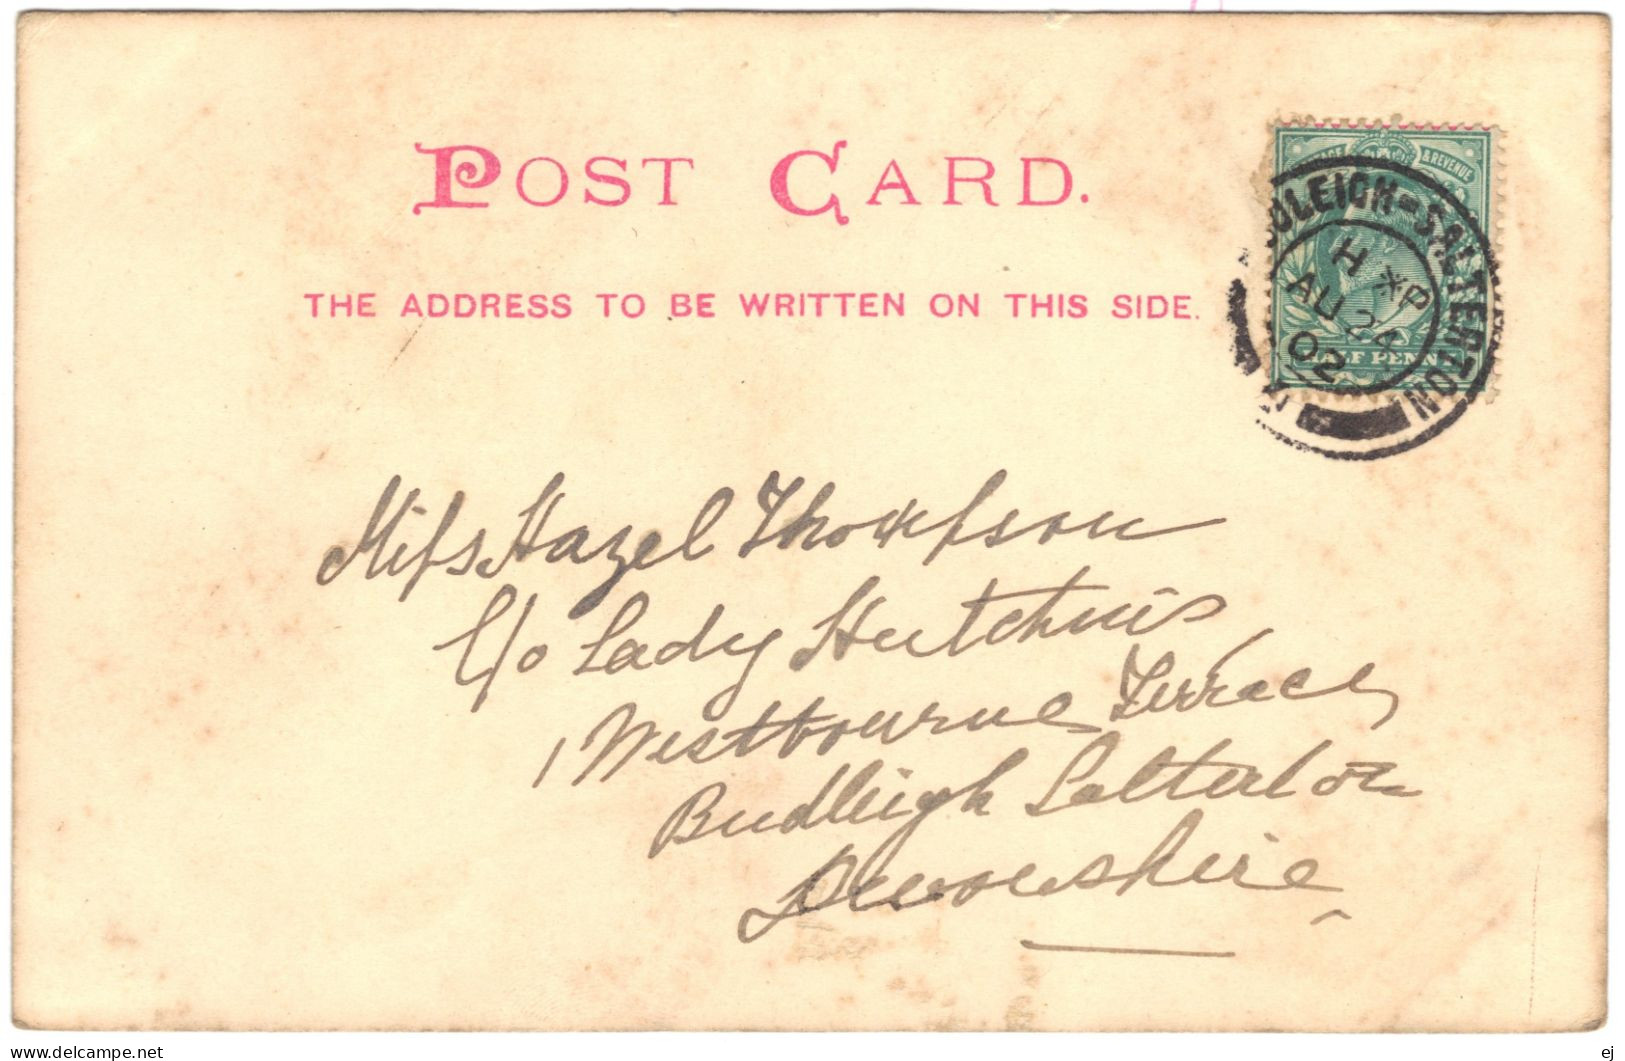 POST CARD.
THE ADDRESS TO BE WRITTEN ON THIS SIDE.
& REVENUE
HALF PENN
UDLEIGH=SALTERTON
H * P
AU 24
02
Miss Hazel Thompson
C/o Lady Hutchins
1 Westbourne Terrace
Budleigh Salterton
Devonshire
www.delcampe.net
ej